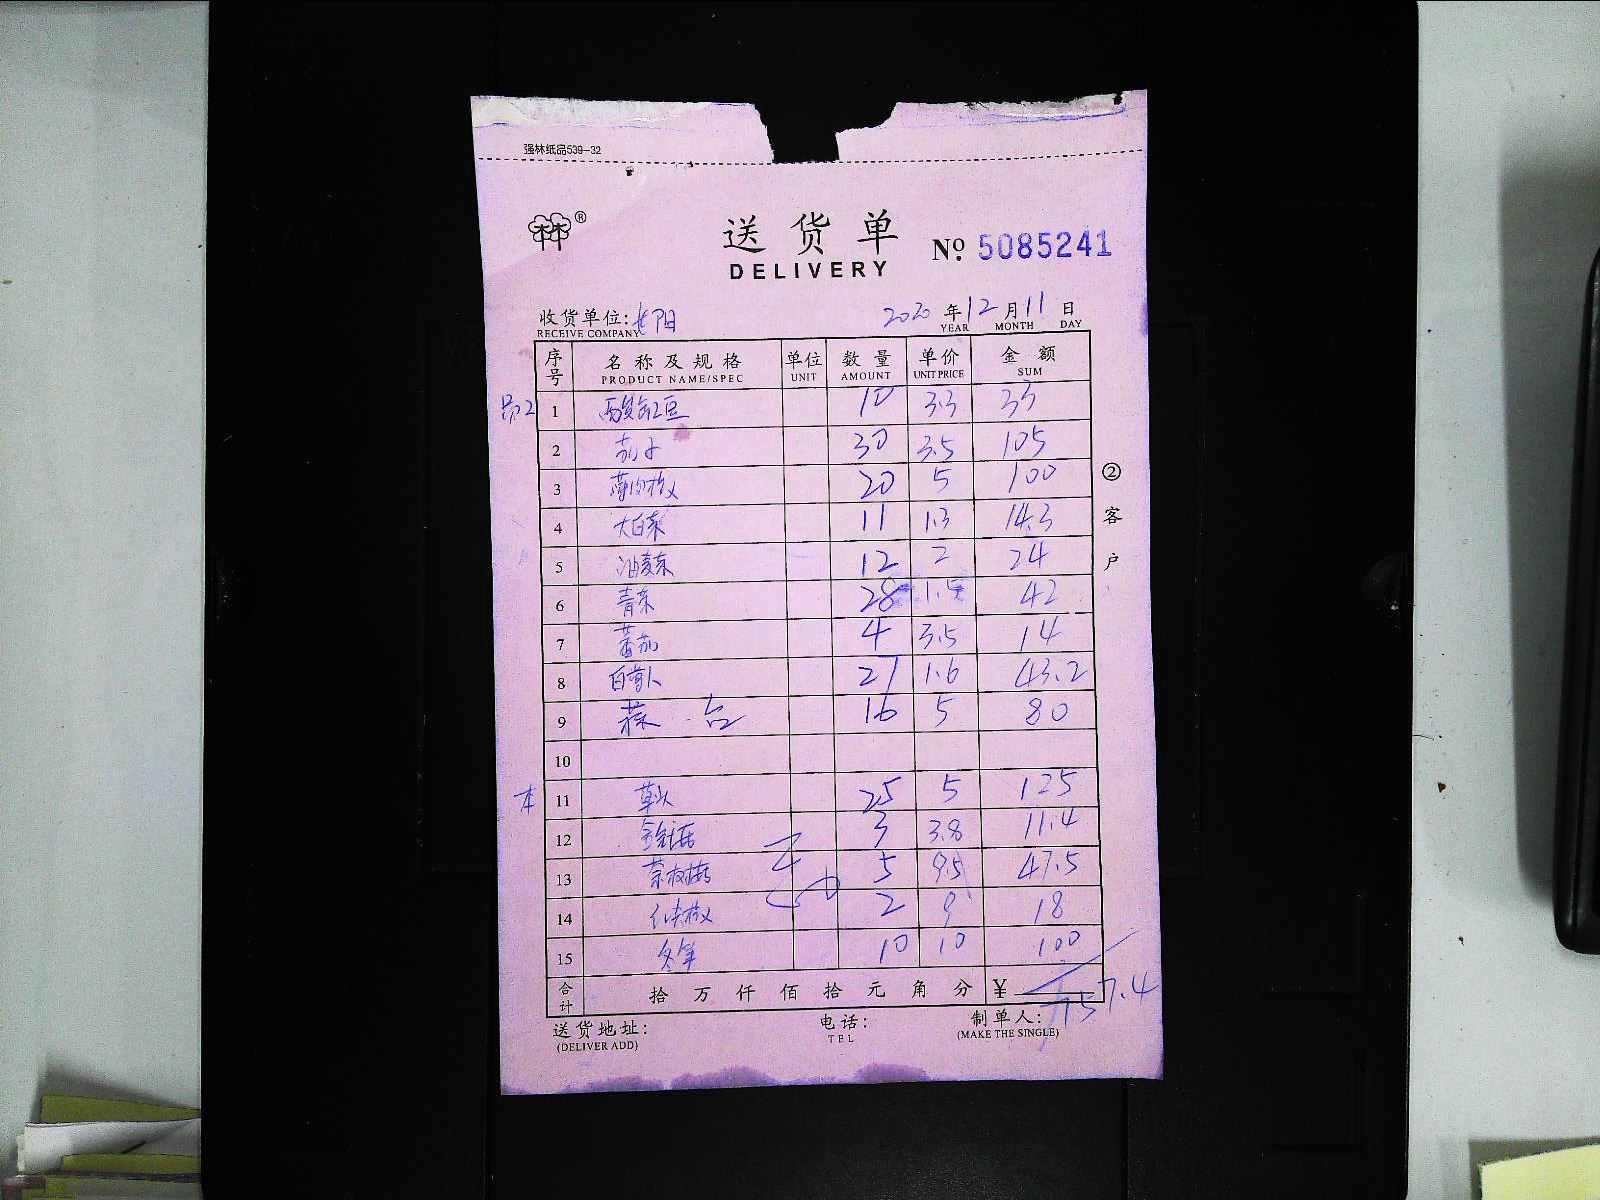 强林纸品539-32
林林®
送货单
DELIVERY
№ 5085241
收货单位:长阳 2020年12月11日
RECEIVE COMPANY YEAR MONTH DAY
序号 名称及规格 单位 数量 单价 金额
PRODUCT NAME/SPEC UNIT AMOUNT UNIT PRICE SUM
1 酸豇豆 10 3.3 33
2 茄子 30 3.5 105
3 薄肉椒 20 5 100
4 大白菜 11 1.3 14.3
5 油麦菜 12 2 24
6 青菜 28 1.5 42
7 蕃茄 4 3.5 14
8 白萝卜 27 1.6 43.2
9 蒜台 16 5 80
10
11 草头 25 5 125
12 金针菇 3 3.8 11.4
13 茶树菇 5 9.5 47.5
14 红尖椒 2 9 18
15 冬笋 10 10 100
合计 拾万仟佰拾元角分 ¥ 757.4
送货地址: 电话: 制单人:
(DELIVER ADD) TEL (MAKE THE SINGLE)
②客户